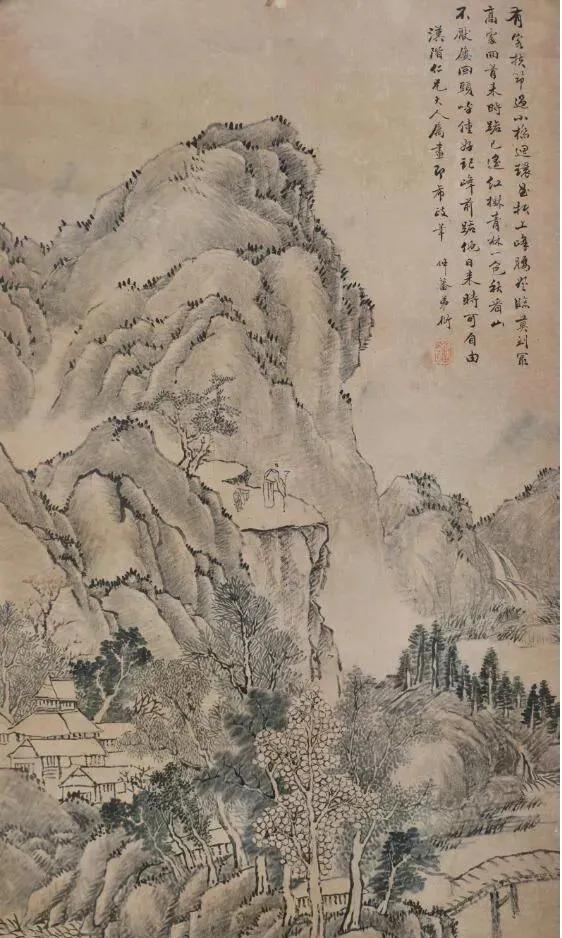 有客扶筇過小橋迴環盤折上峰腰登臨莫到最
高處回首来時路已遙紅樹青林一色秋看山
不厭屢回頭佳好記峰前路他日来時可自由
漢階仁兄大人属畫即希政筆 仲弟衍